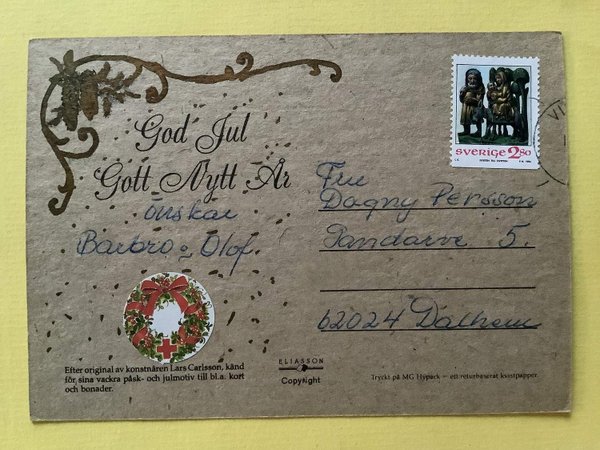 God Jul
Gott Nytt År
önskar
Barbro o Olof
SVERIGE 2.80
Fru
Dagny Persson
Pandarve 5.
62024 Dalhem
Efter original av konstnären Lars Carlsson, känd
för sina vackra påsk- och julmotiv till bl.a. kort
och bonader.
ELIASSON
Copyright
Tryckt på MG Hypack – ett returbaserat konstpapper.